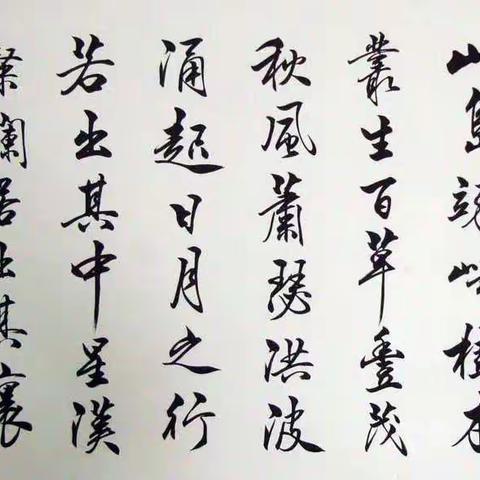 山島竦峙樹木
叢生百草豐茂
秋風蕭瑟洪波
涌起日月之行
若出其中星漢
粲爛若出其裏